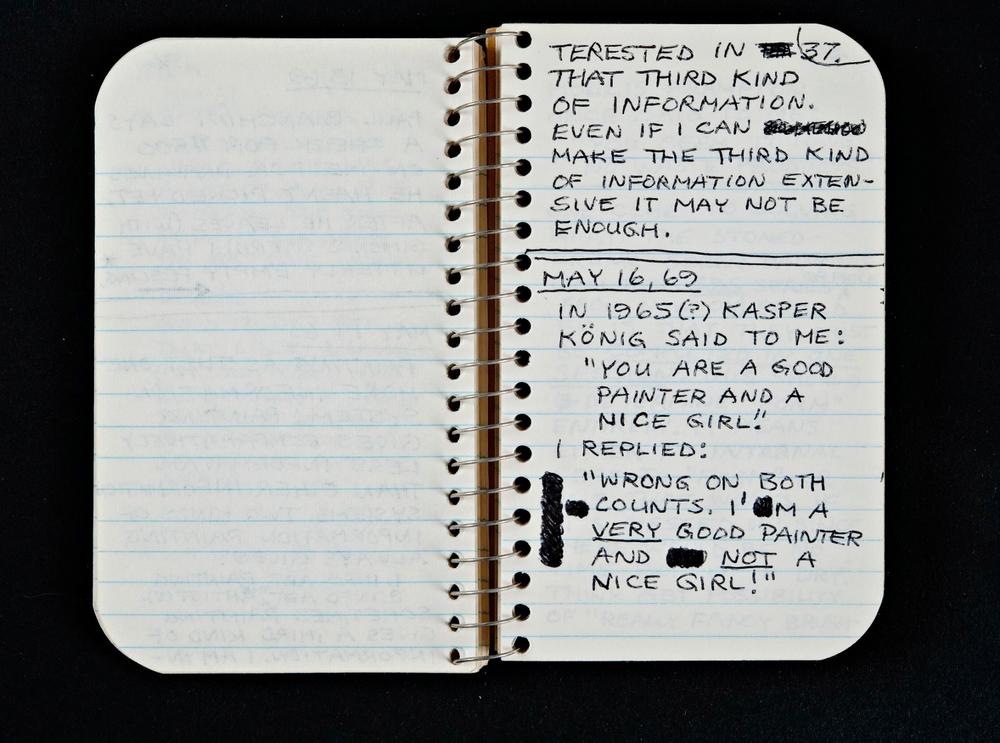 TERESTED IN 37.
THAT THIRD KIND
OF INFORMATION.
EVEN IF I CAN
MAKE THE THIRD KIND
OF INFORMATION EXTEN-
SIVE IT MAY NOT BE
ENOUGH.
MAY 16, 69
IN 1965(?) KASPER
KÖNIG SAID TO ME:
"YOU ARE A GOOD
PAINTER AND A
NICE GIRL!"
I REPLIED:
"WRONG ON BOTH
COUNTS. I'M A
VERY GOOD PAINTER
AND NOT A
NICE GIRL!"